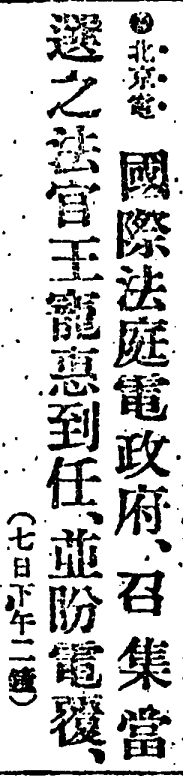 ●北京電　國際法庭電政府、召集當
選之法官王寵惠到任、並盼電覆、
（七日下午二鐘）